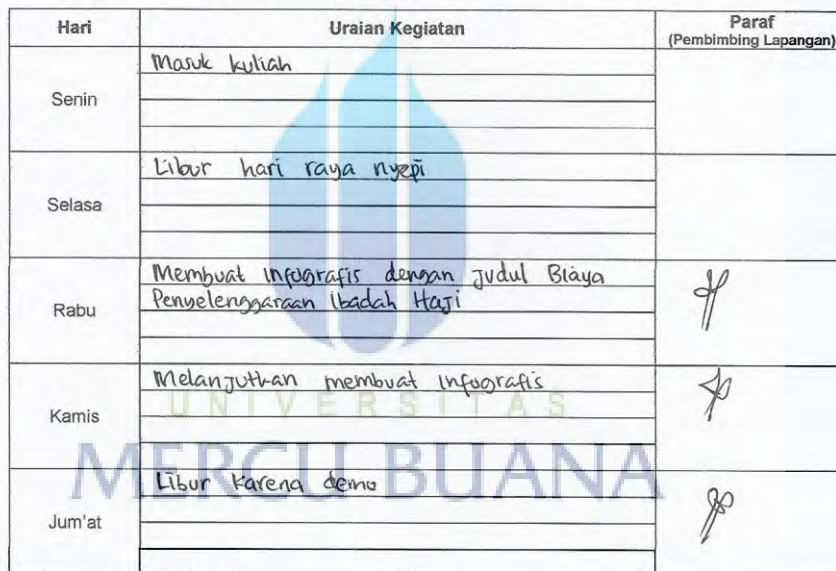 Hari Uraian Kegiatan Paraf
(Pembimbing Lapangan)
Senin
Masuk kuliah
Selasa
Libur hari raya nyepi
Rabu
Membuat infografis dengan judul Biaya
Penyelenggaraan ibadah Haji
Kamis
Melanjutkan membuat infografis
UNIVERSITAS
MERCU BUANA
Jum'at
Libur karena demo